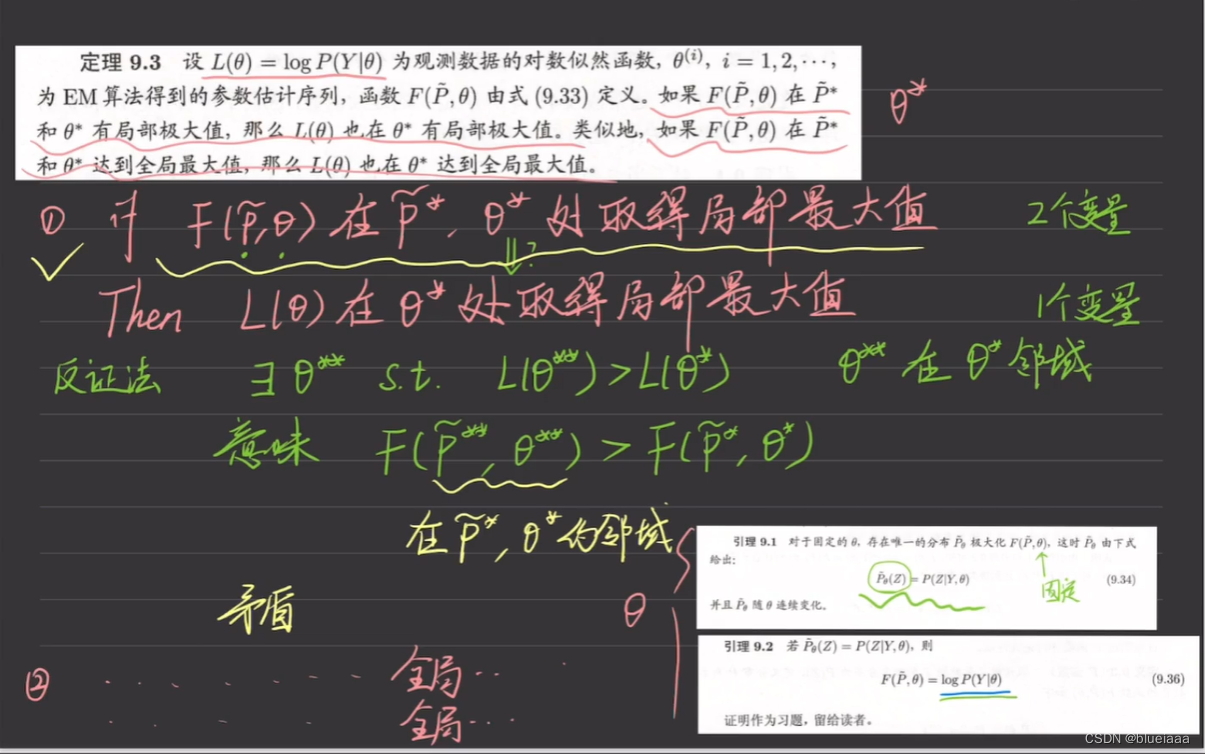 定理 9.3 设 L(θ) = log P(Y|θ) 为观测数据的对数似然函数, θ⁽ⁱ⁾, i = 1, 2, ⋯,
为 EM 算法得到的参数估计序列, 函数 F(P̃, θ) 由式 (9.33) 定义。如果 F(P̃, θ) 在 P̃*
和 θ* 有局部极大值, 那么 L(θ) 也在 θ* 有局部极大值。类似地, 如果 F(P̃, θ) 在 P̃*
和 θ* 达到全局最大值, 那么 L(θ) 也在 θ* 达到全局最大值。
θ*
① if F(P̃, θ) 在 P̃*, θ* 处取得局部最大值 2个变量
⇓?
Then L(θ) 在 θ* 处取得局部最大值 1个变量
反证法 ∃ θ** s.t. L(θ**) > L(θ*) θ** 在 θ* 邻域
意味 F(P̃**, θ**) > F(P̃*, θ*)
在 P̃*, θ* 的邻域
矛盾 θ
② · · · · · · · 全局···
· · · · 全局···
引理 9.1 对于固定的 θ, 存在唯一的分布 P̃θ 极大化 F(P̃, θ), 这时 P̃θ 由下式
给出:
P̃θ(Z) = P(Z|Y, θ) (9.34)
固定
并且 P̃θ 随 θ 连续变化。
引理 9.2 若 P̃θ(Z) = P(Z|Y, θ), 则
F(P̃, θ) = log P(Y|θ) (9.36)
证明作为习题, 留给读者。
CSDN @blueiaaa